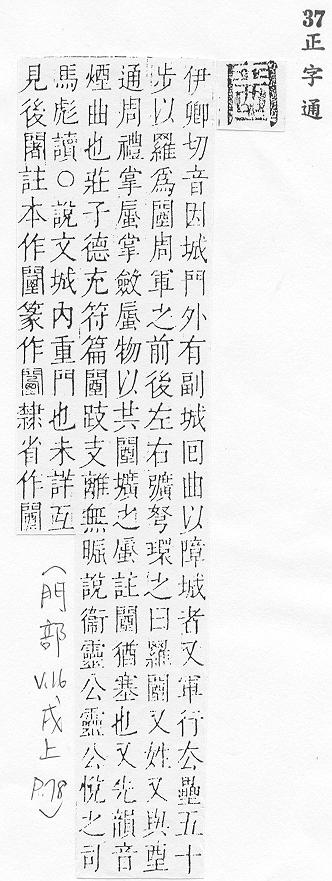 37 正字通
闉
伊卿切音因城門外有副城回曲以障城者又軍行去壘五十
步以羅爲闉周軍之前後左右彍弩環之曰羅闉又姓又與堙
通周禮掌蜃掌斂蜃物以共闉壙之蜃註闉猶塞也又先韻音
煙曲也莊子德充符篇闉跂支離無脤說衞靈公靈公悅之司
馬彪讀○說文城內重門也未詳互
見後闍註本作闉篆作闉隸省作闉
(門部 V.16,戌上 P.78)